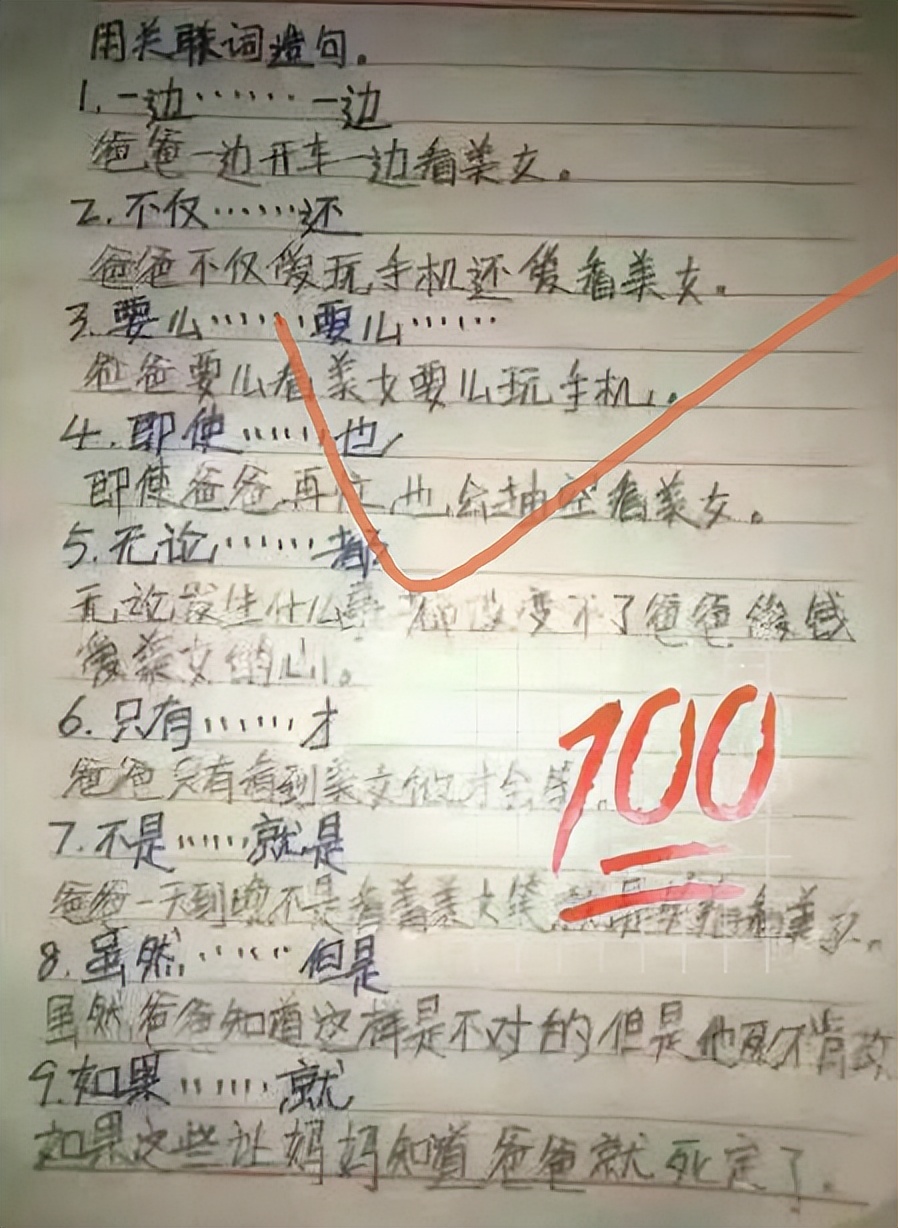 用关联词造句。
1.一边……一边
爸爸一边开车一边看美女。
2.不仅……还
爸爸不仅爱玩手机还爱看美女。
3.要么……要么……
爸爸要么看美女要么玩手机。
4.即使……也
即使爸爸再忙也会抽空看美女。
5.无论……都
无论发生什么事都改变不了爸爸爱钱
爱美女的心。
6.只有……才
爸爸只有看到美女他才会笑。
7.不是……就是
爸爸一天到晚不是看着美女笑就是
看美女。
8.虽然……但是
虽然爸爸知道这样是不对的但是他不肯改
9.如果……就
如果这些让妈妈知道爸爸就死定了。
100